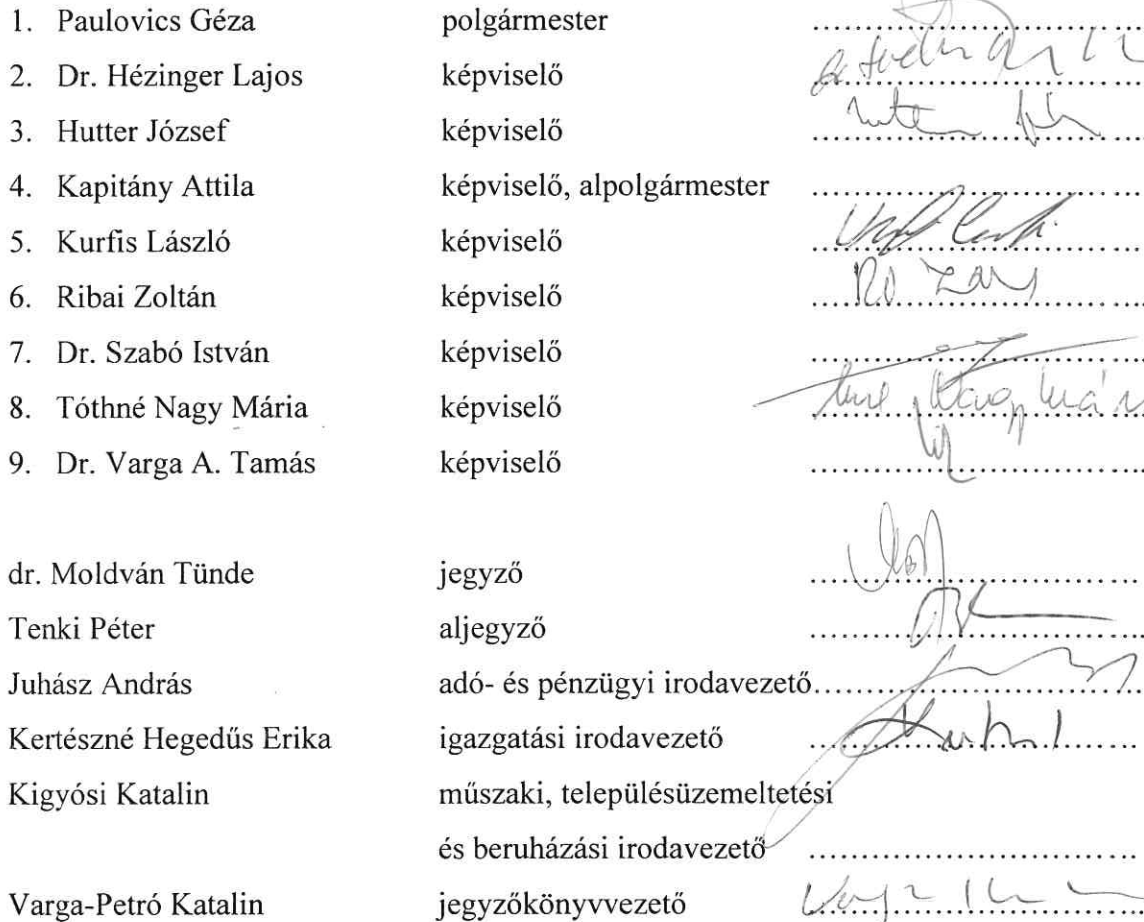 1. Paulovics Géza polgármester
2. Dr. Hézinger Lajos képviselő
3. Hutter József képviselő
4. Kapitány Attila képviselő, alpolgármester
5. Kurfis László képviselő
6. Ribai Zoltán képviselő
7. Dr. Szabó István képviselő
8. Tóthné Nagy Mária képviselő
9. Dr. Varga A. Tamás képviselő
dr. Moldván Tünde jegyző
Tenki Péter aljegyző
Juhász András adó- és pénzügyi irodavezető
Kertészné Hegedűs Erika igazgatási irodavezető
Kigyósi Katalin műszaki, településüzemeltetési
és beruházási irodavezető
Varga-Petró Katalin jegyzőkönyvvezető